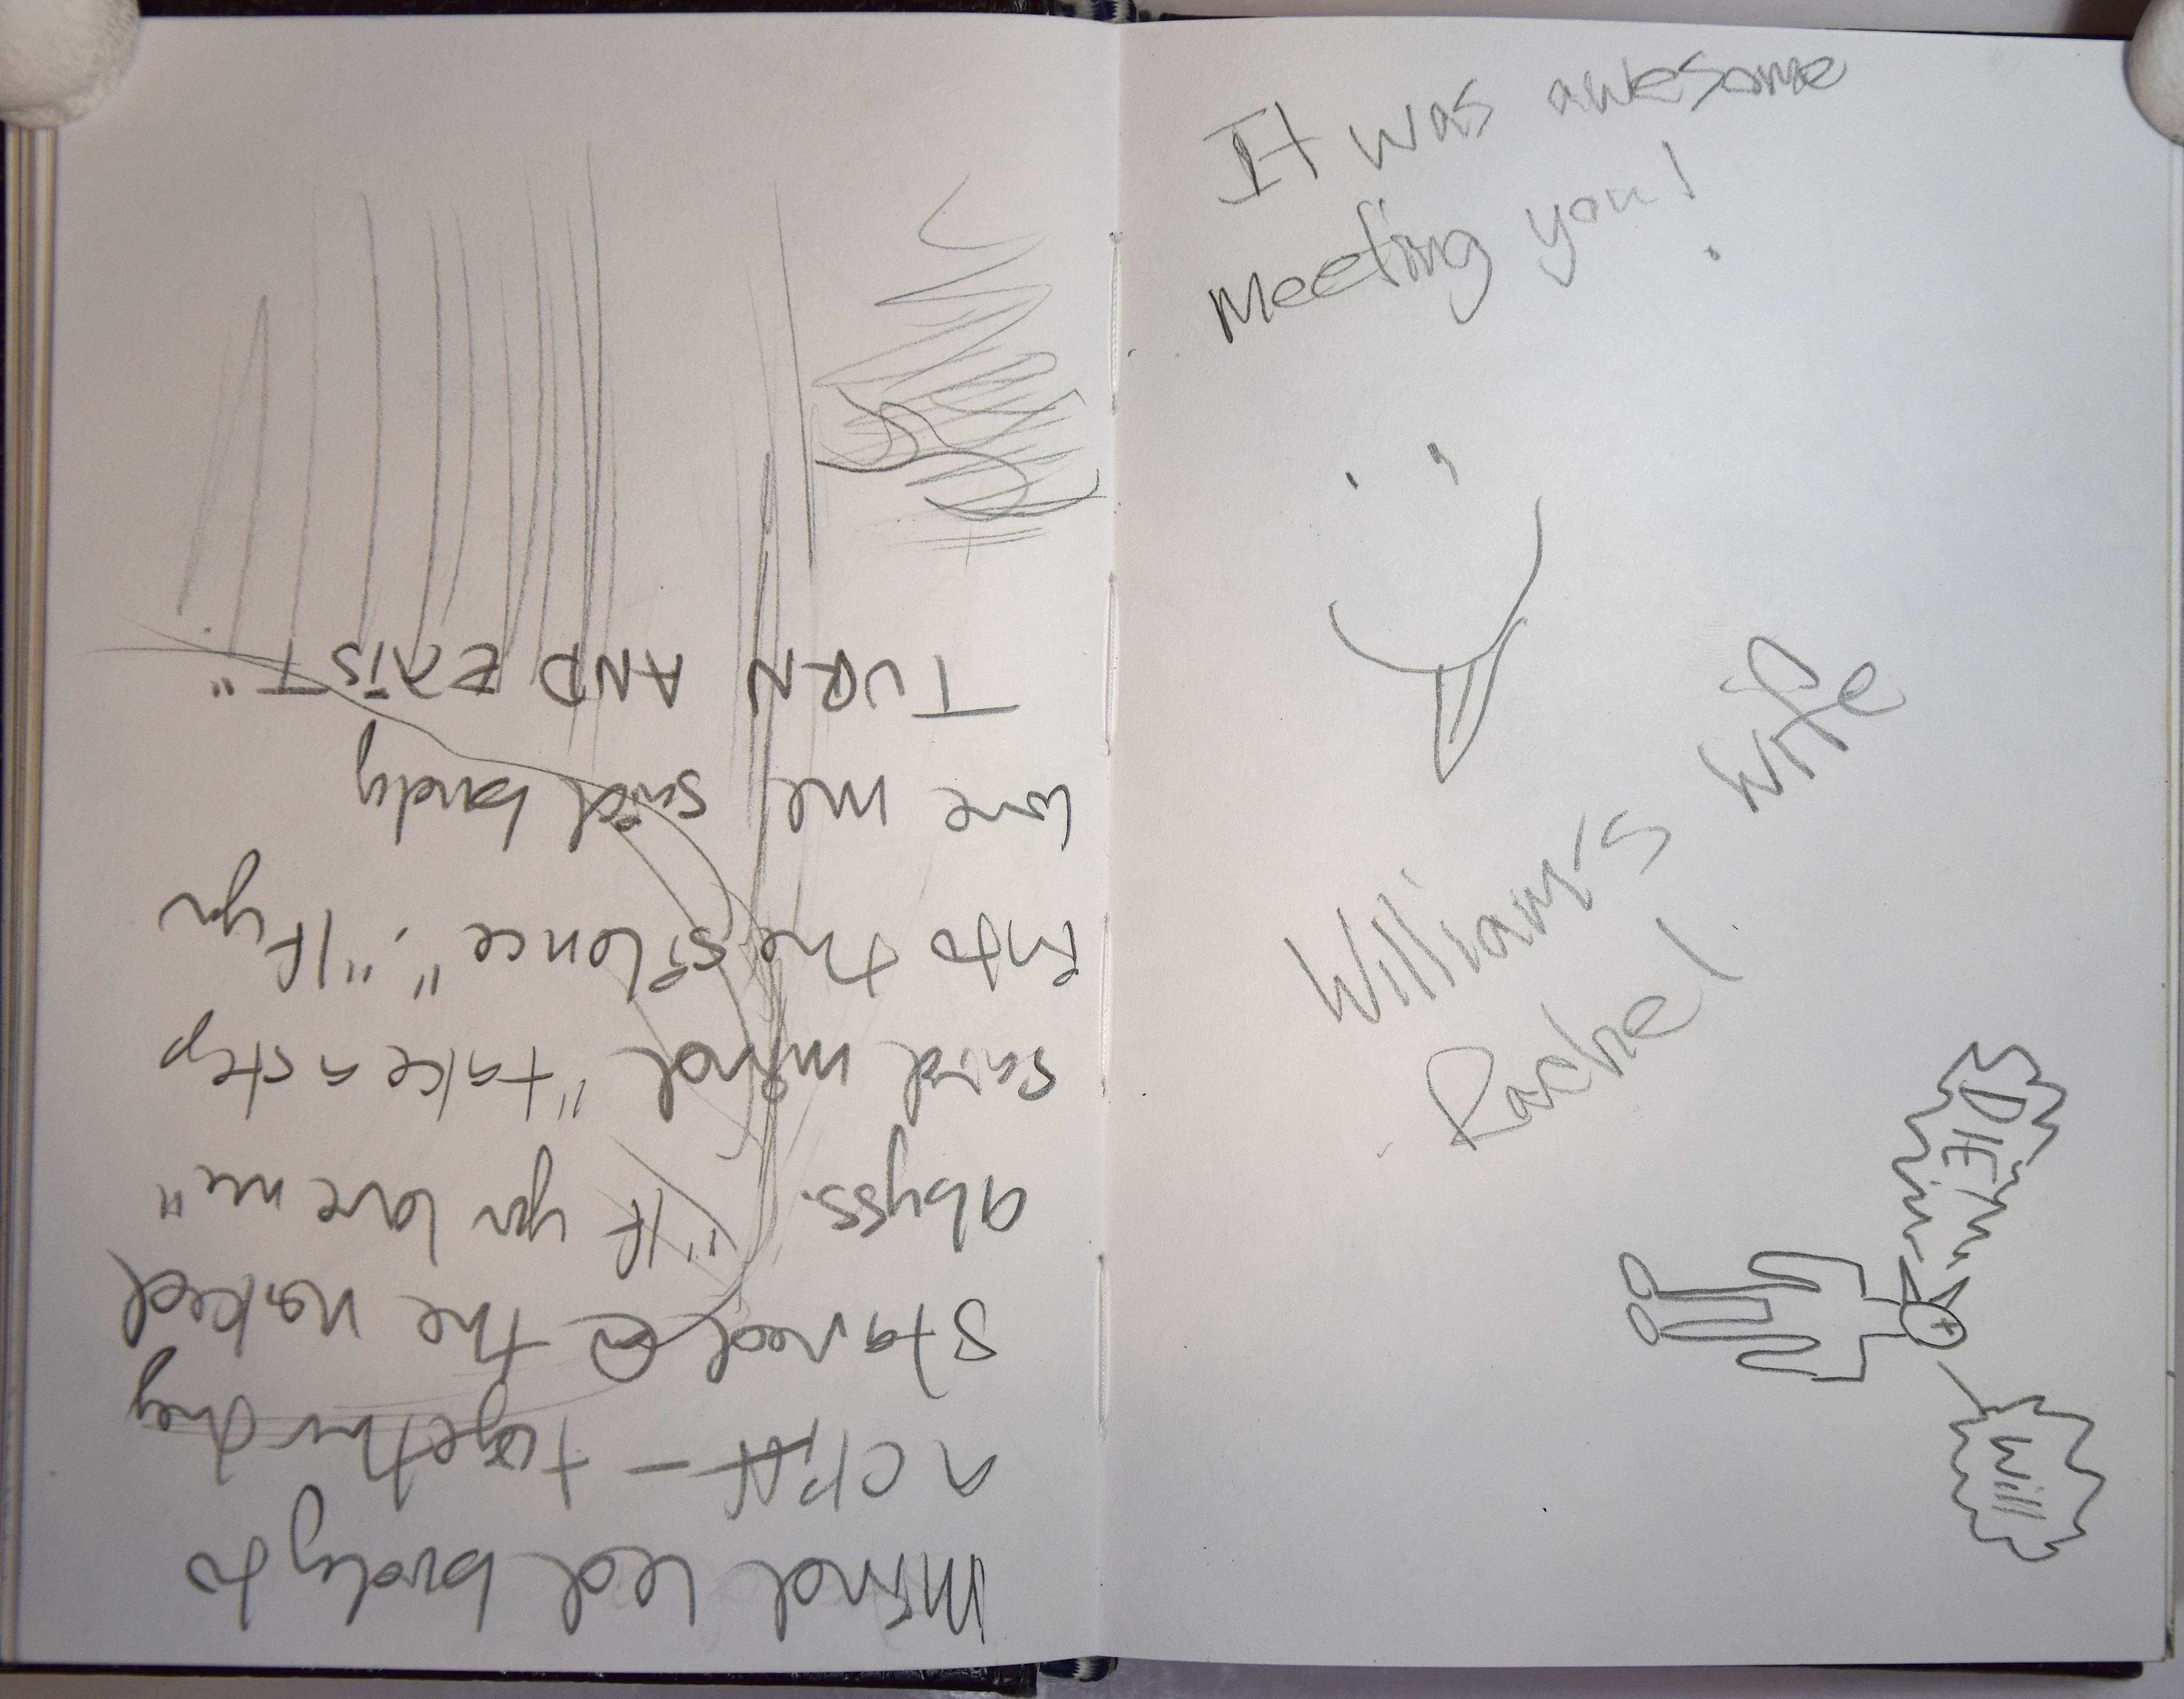 Mind led body to
a cliff - together they
stared @ the naked
abyss. "If you love me"
said mind "take a step
into the silence". "If you
love me said body
TURN AND EXIST"
It was awesome
meeting you!
William's wife
Rachel
DIE
Will